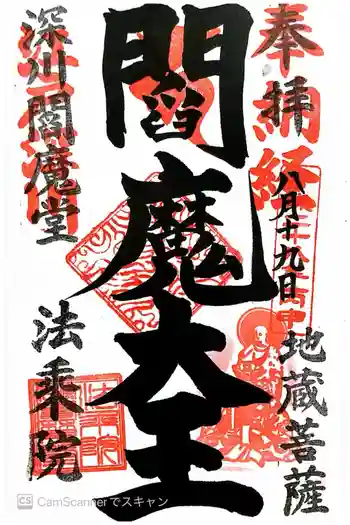 奉拝
八月十九日
地蔵菩薩
閻魔大王
深川閻魔堂
法乗院
CS CamScannerでスキャン